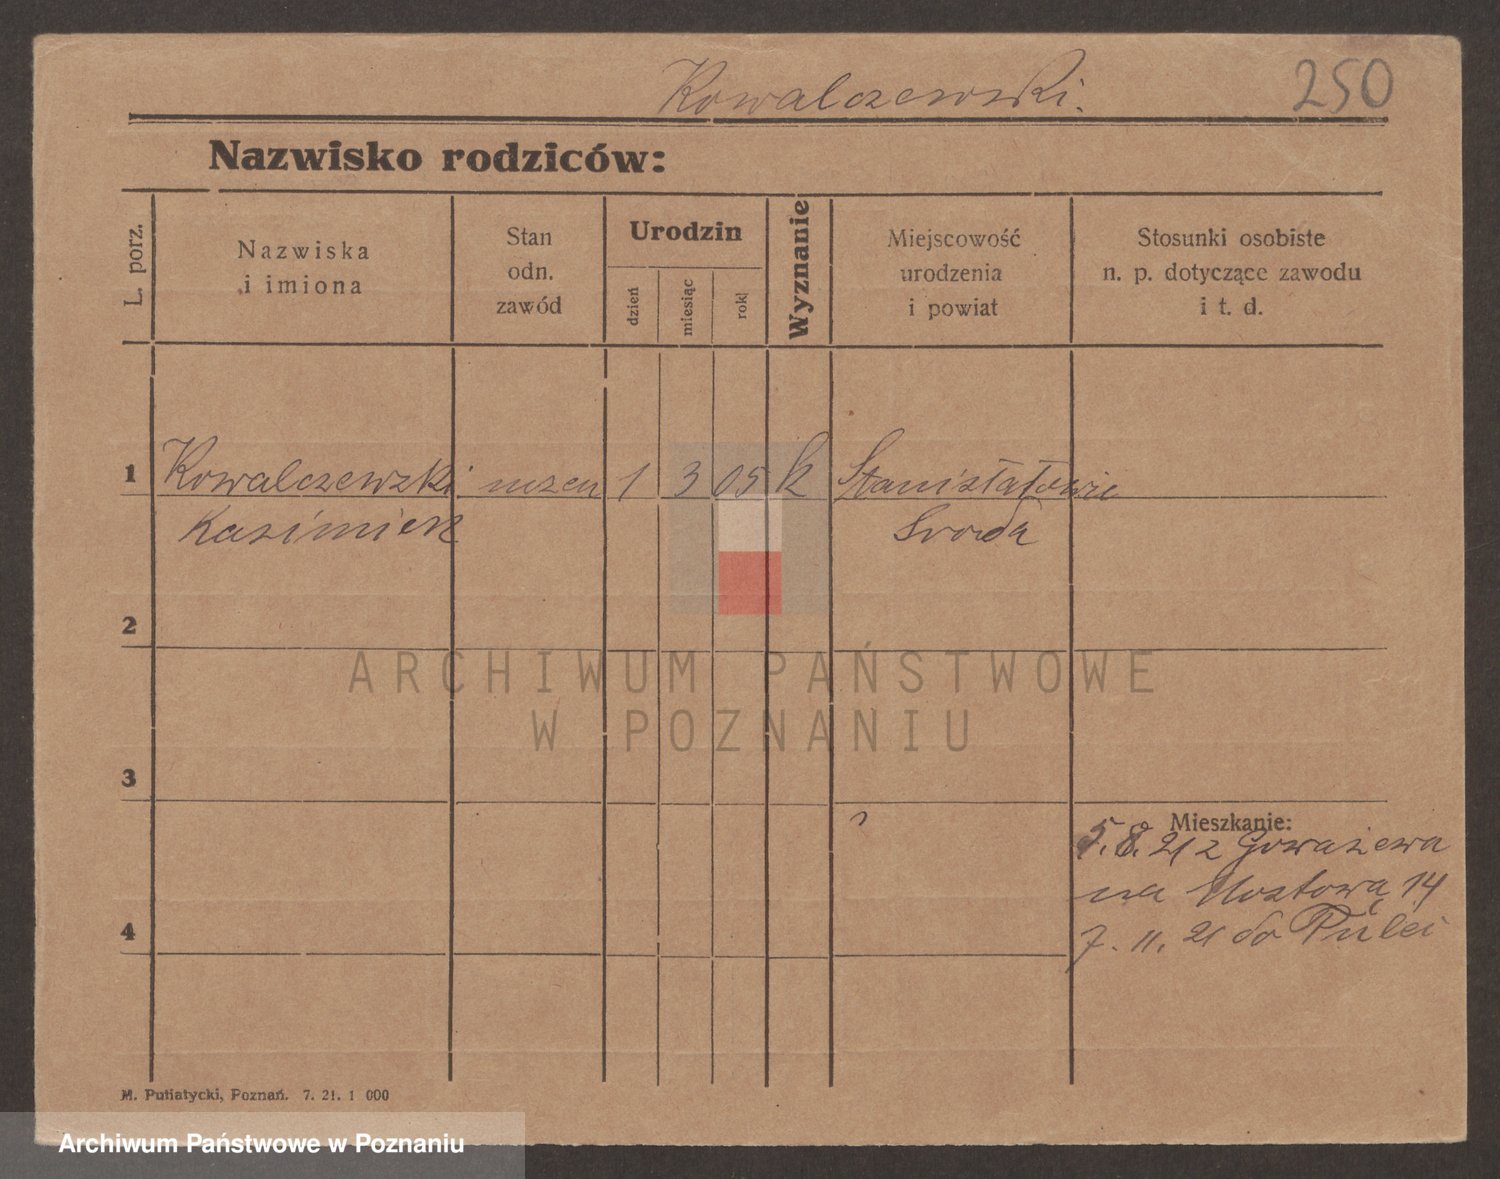 Kowalczewski.
250
Nazwisko rodziców:
L. porz.
Nazwiska
i imiona
Stan
odn.
zawód
Urodzin
dzień
miesiąc
rok
Wyznanie
Miejscowość
urodzenia
i powiat
Stosunki osobiste
n. p. dotyczące zawodu
i t. d.
1 Kowalczewski uczen 1 3 05 k
Kasimierz Sroda
2
ARCHIWUM PAŃSTWOWE
W POZNANIU
3
Mieszkanie:
5. 8. 21 z Gowarzewa
na 14
4
7. 11. 21 do
M. Putiatycki, Poznań. 7. 21. 1 000
Archiwum Państwowe w Poznaniu